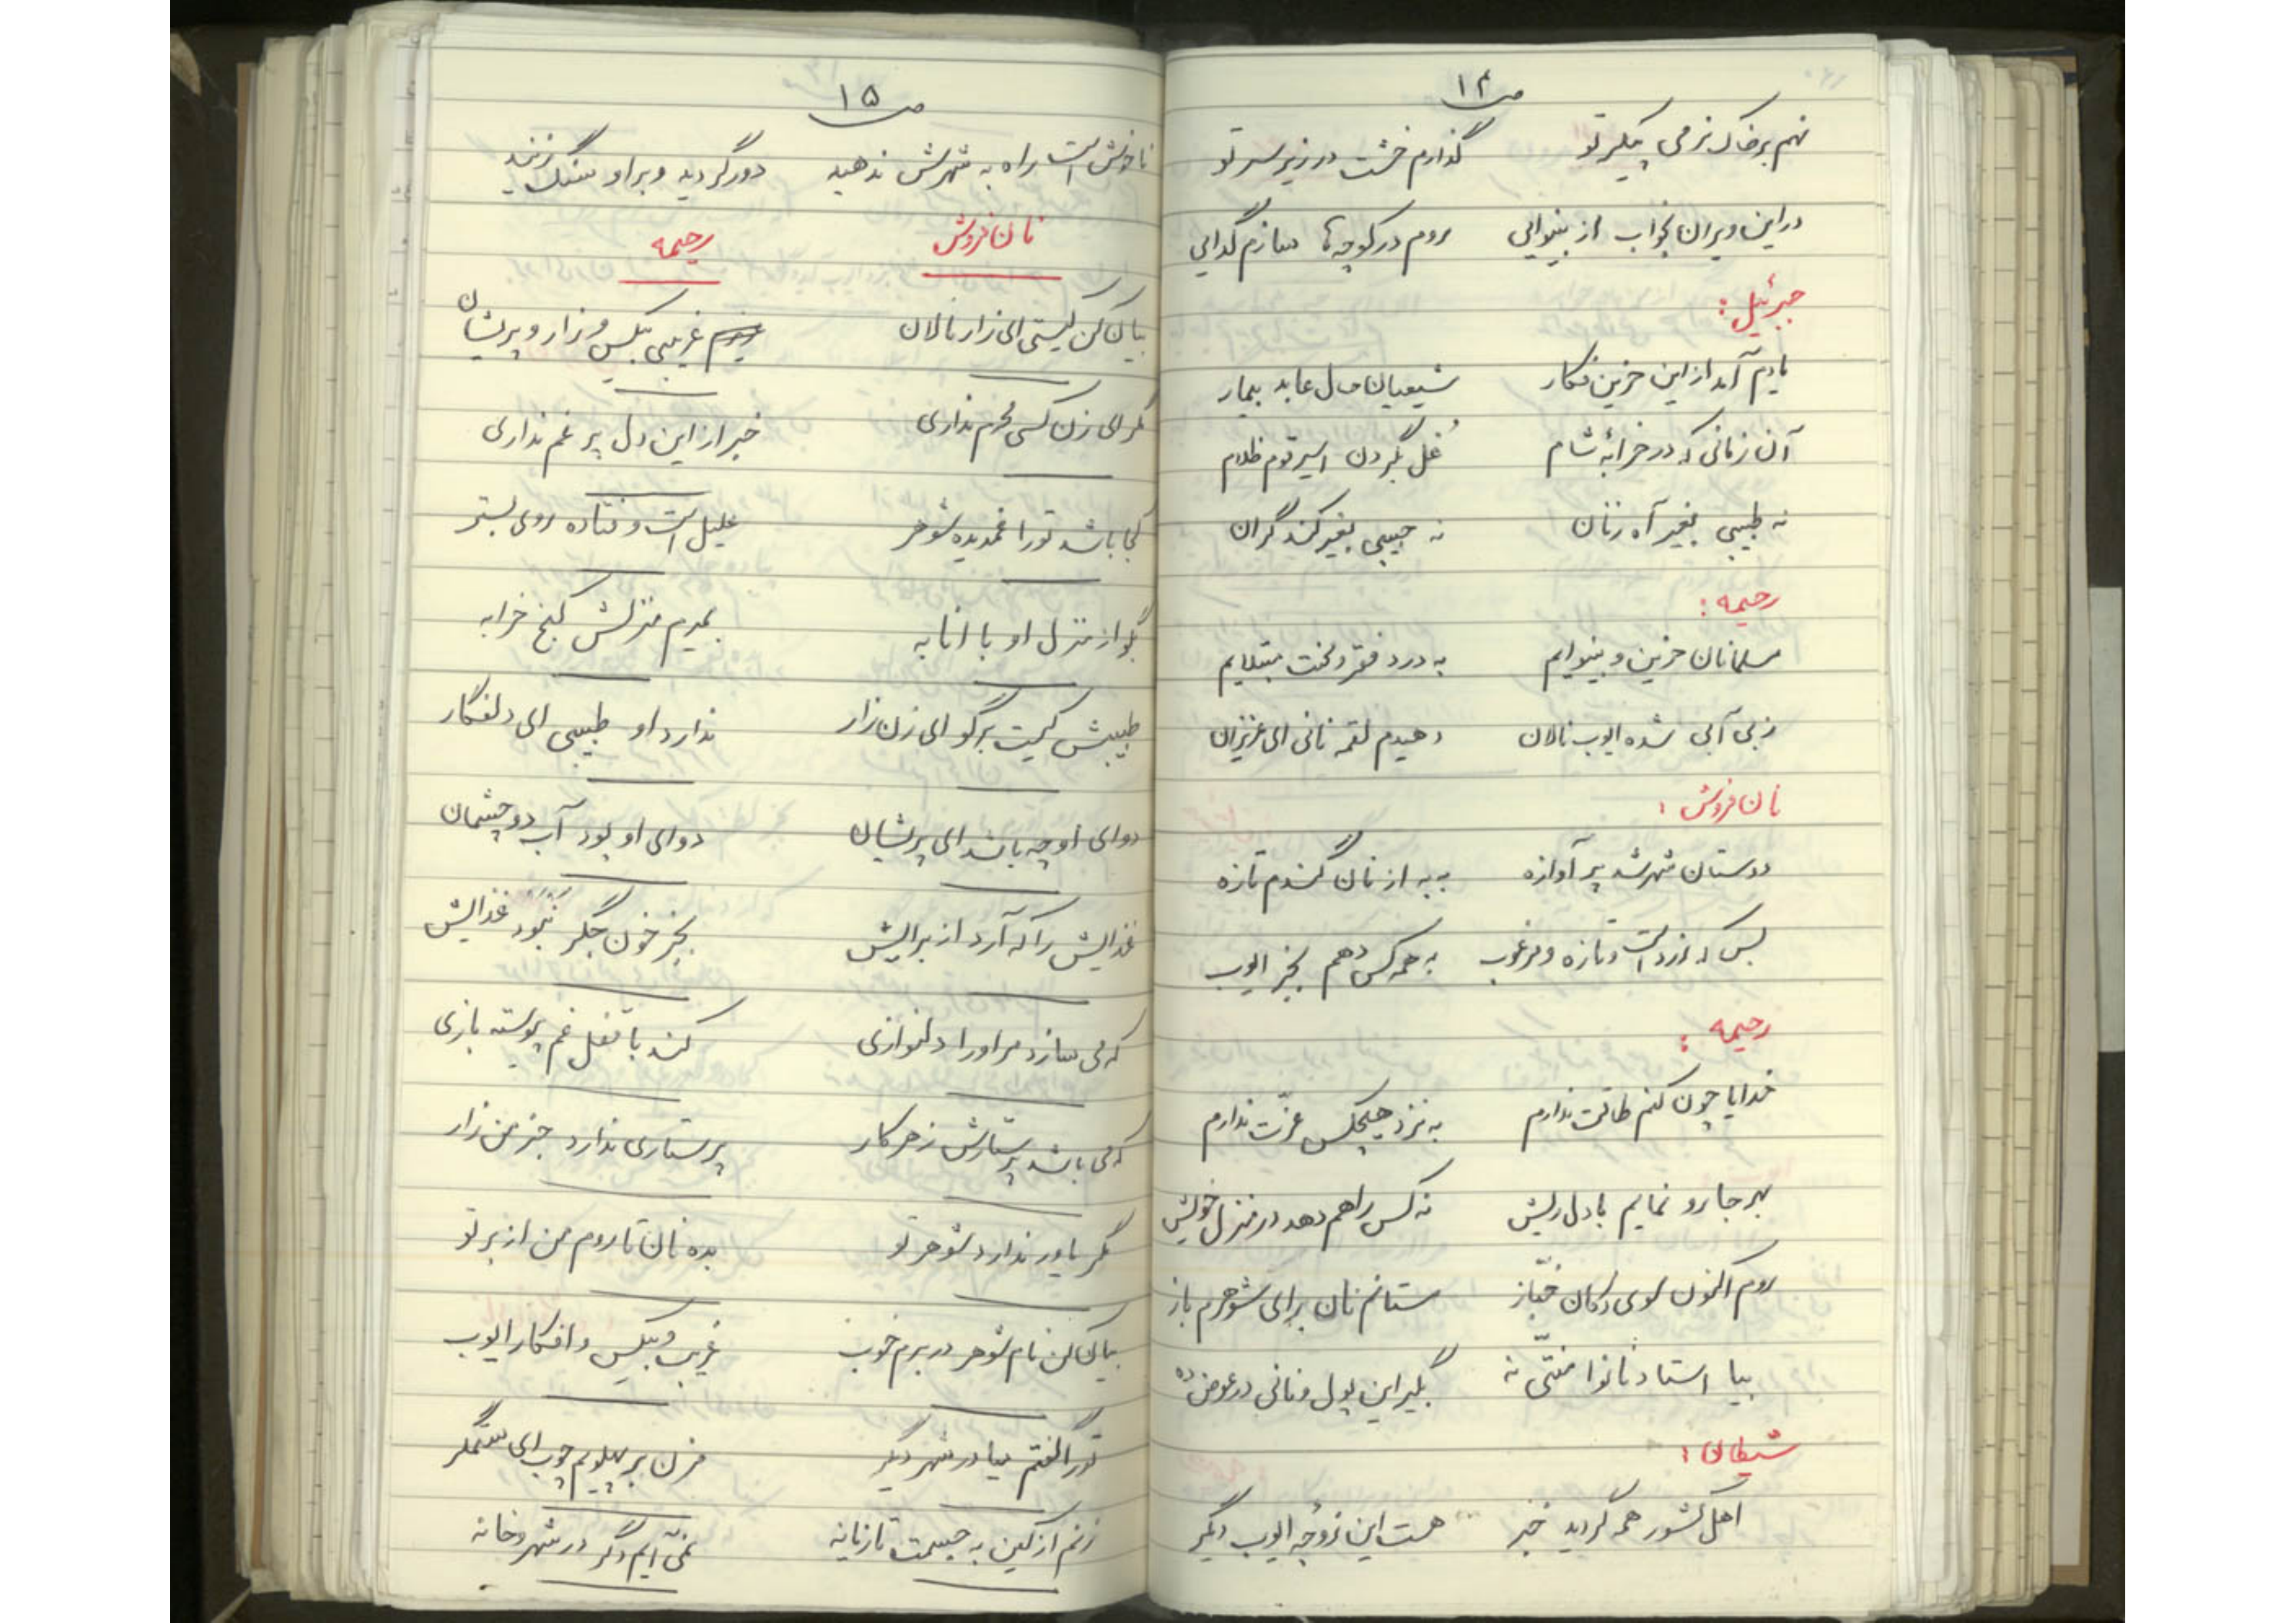 ص ۱۴
نهم بر خاک نرمی پیکر تو گذارم خشت در زیر سر تو
در این ویران بخواب از بینوایی بروم در کوچه‌ها سازم گدایی
جبرئیل :
یادم آمد از این حزین فکار شیعیان حال عابد بیمار
آن زمانی که در خرابه شام غل بگردن اسیر قوم ظلام
نه طبیبی بغیر آه زنان نه حبیبی بغیر کند گران
رحیمه :
مسلمانان حزین و بینوایم به درد فقر و محنت مبتلایم
ز بی آبی شده ایوب نالان دهیدم لقمه نانی ای عزیزان
نان فروش :
دوستان شهر شد پر آوازه به به از نان گندم تازه
بس که زرد است و تازه و مرغوب به همه کس دهم بجز ایوب
رحیمه :
خدایا چون کنم طاقت ندارم به نزد هیچکس عزّت ندارم
بهر جا رو نمایم با دل ریش نه کس راهم دهد در منزل خویش
روم اکنون بسوی دکان خبّاز ستانم نان برای شوهرم باز
بیا استاد نانوا منّتی نه بگیر این پول و نانی در عوض ده
شیطان :
اهل کشور همه گردید خبر هست این زوجه ایوب دیگر
ص ۱۵
ناخوش است راه به شهرش ندهید دور گردید و بر او سنگ زنید
نان فروش رحیمه
بیان کن کیستی ای زار نالان غریبی بیکس و زار و پریشان
مگر ای زن کسی محرم نداری خبر از این دل پر غم نداری
کجا باشد تو را غمدیده شوهر علیل است و فتاده روی بستر
بگو از منزل او با انابه بمیرم منزلش کنج خرابه
طبیبش کیست برگو ای زن زار ندارد او طبیبی ای دلفکار
دوای او چه باشد ای پریشان دوای او بود آب دو چشمان
غذایش را که آرد از برایش بجز خون جگر نبود غذایش
که می سازد مر او را دلنوازی کند با قفل غم پیوسته بازی
که می باشد پرستارش ز هر کار پرستاری ندارد جز من زار
مگر یاور ندارد شوهر تو بده نان تا روم من از بر تو
بیان کن نام شوهر در برم خوب غریب و بیکس و افکار ایوب
تو را گفتم میا در شهر دیگر مزن بر پهلویم چوب ای ستمگر
زنم از کین به جسمت تازیانه نمی آیم دگر در شهر و خانه